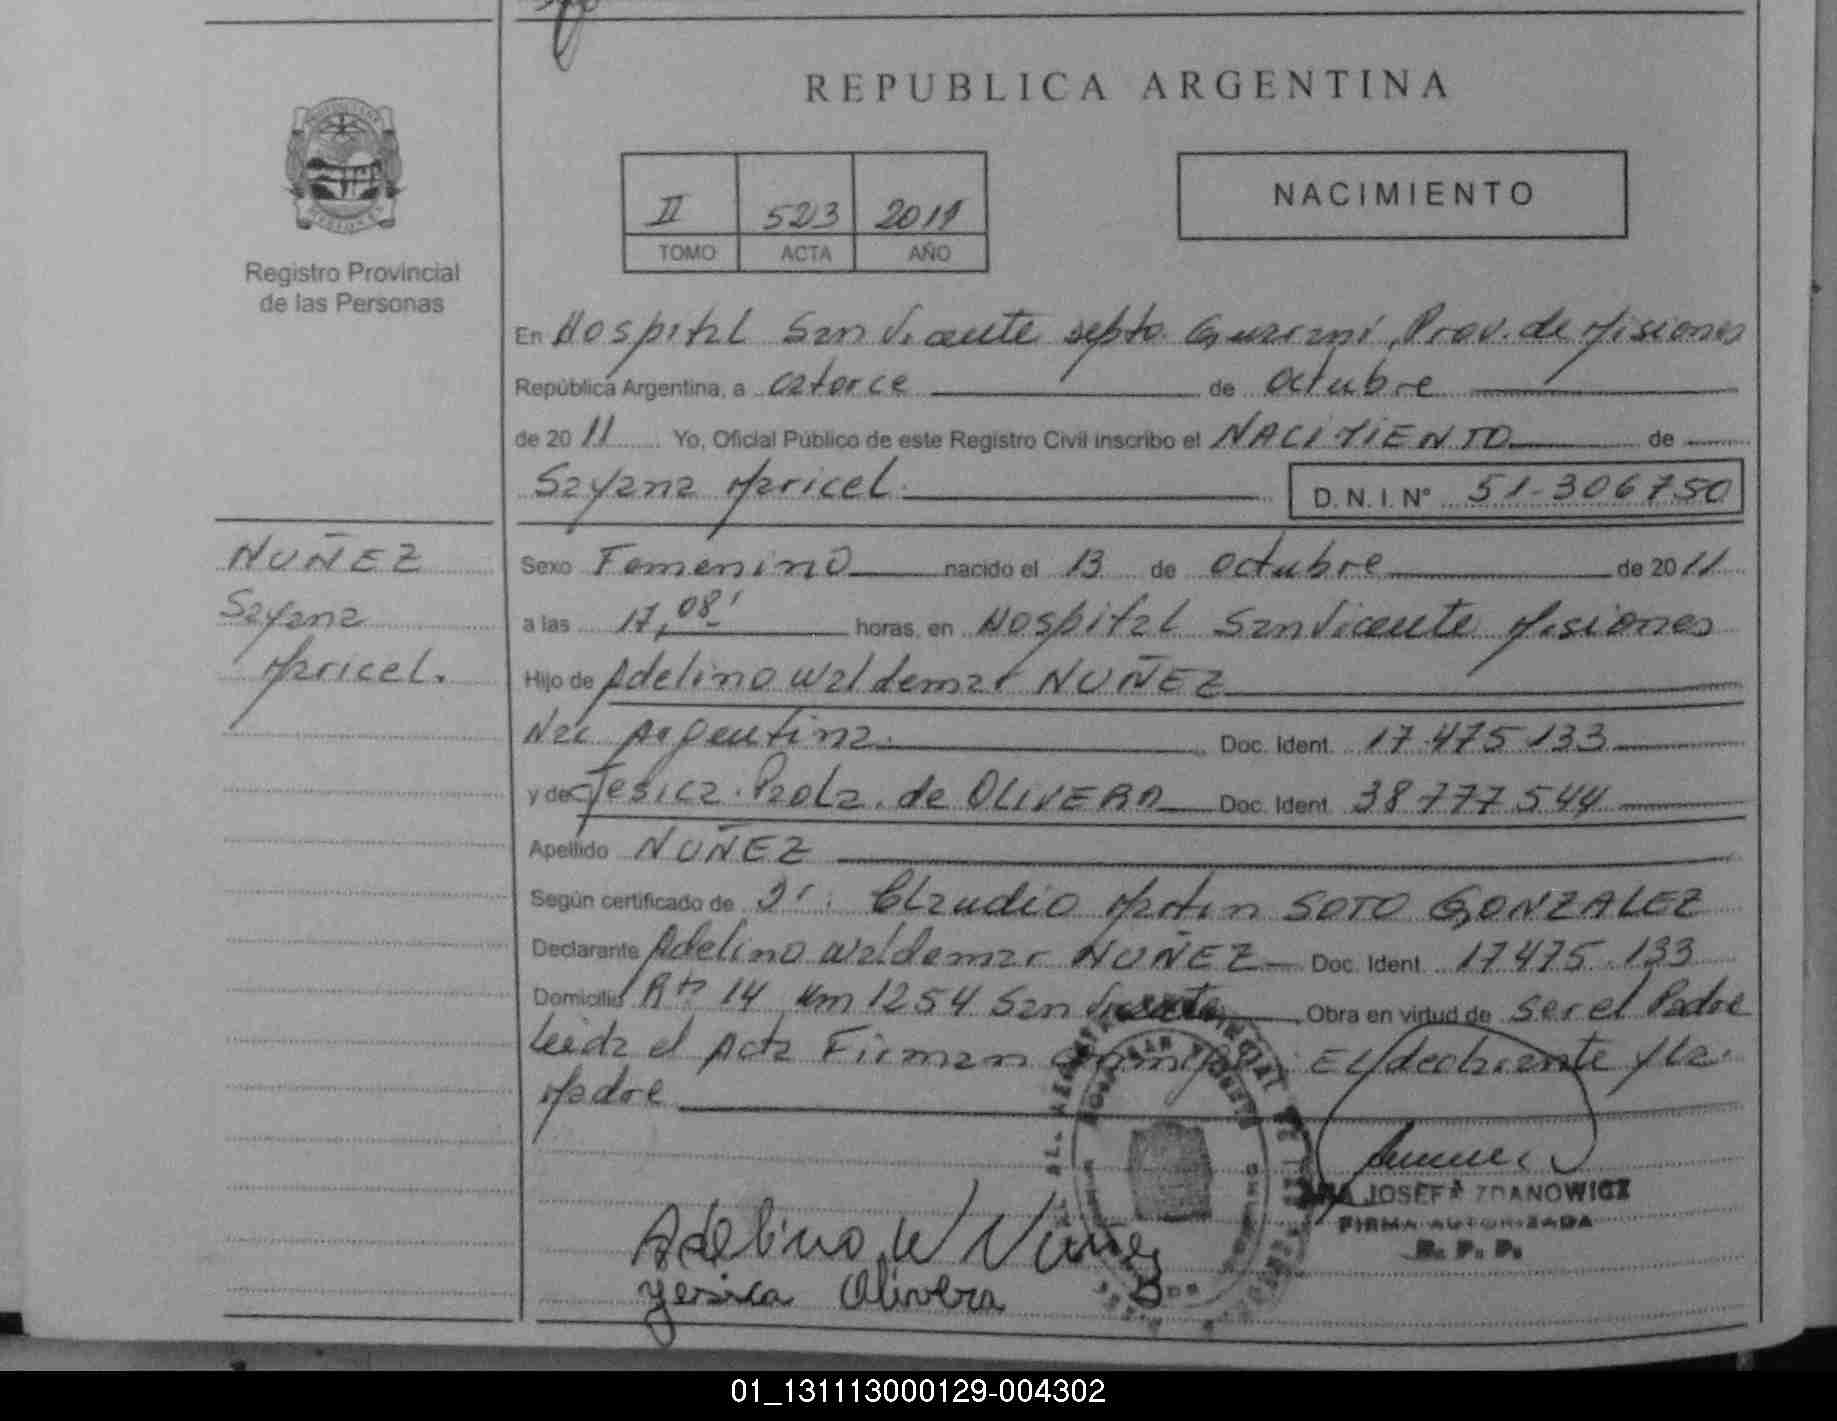 REPUBLICA ARGENTINA
NACIMIENTO
II 523 2011
TOMO ACTA AÑO
Registro Provincial
de las Personas
En Hospital San Vicente Depto. Guarani, Prov. de Misiones
República Argentina, a catorce de octubre
de 2011 Yo, Oficial Público de este Registro Civil inscribo el NACIMIENTO de
Sayana Maricel. D.N.I. Nº 51-306750
NUÑEZ
Sayana
Maricel.
Sexo Femenino nacido el 13 de octubre de 2011
a las 17,08' horas, en Hospital San Vicente Misiones
Hijo de Adelino Waldemar NUÑEZ
Nac Argentina. Doc. Ident. 17.475.133
y de Jesica. Paola. de OLIVERA Doc. Ident. 38777544
Apellido NUÑEZ
Según certificado de Dr. Claudio Martin SOTO GONZALEZ
Declarante Adelino Waldemar NUÑEZ Doc. Ident. 17475.133
Domicilio Rta 14 Km 1254 San Vicente Obra en virtud de ser el Padre
Leida el Acta Firman El declarante y la
Madre
JOSEFA ZDANOWICZ
FIRMA AUTORIZADA
R. P. P.
Adelino W Nuñez
Yesica Olivera
01_131113000129-004302